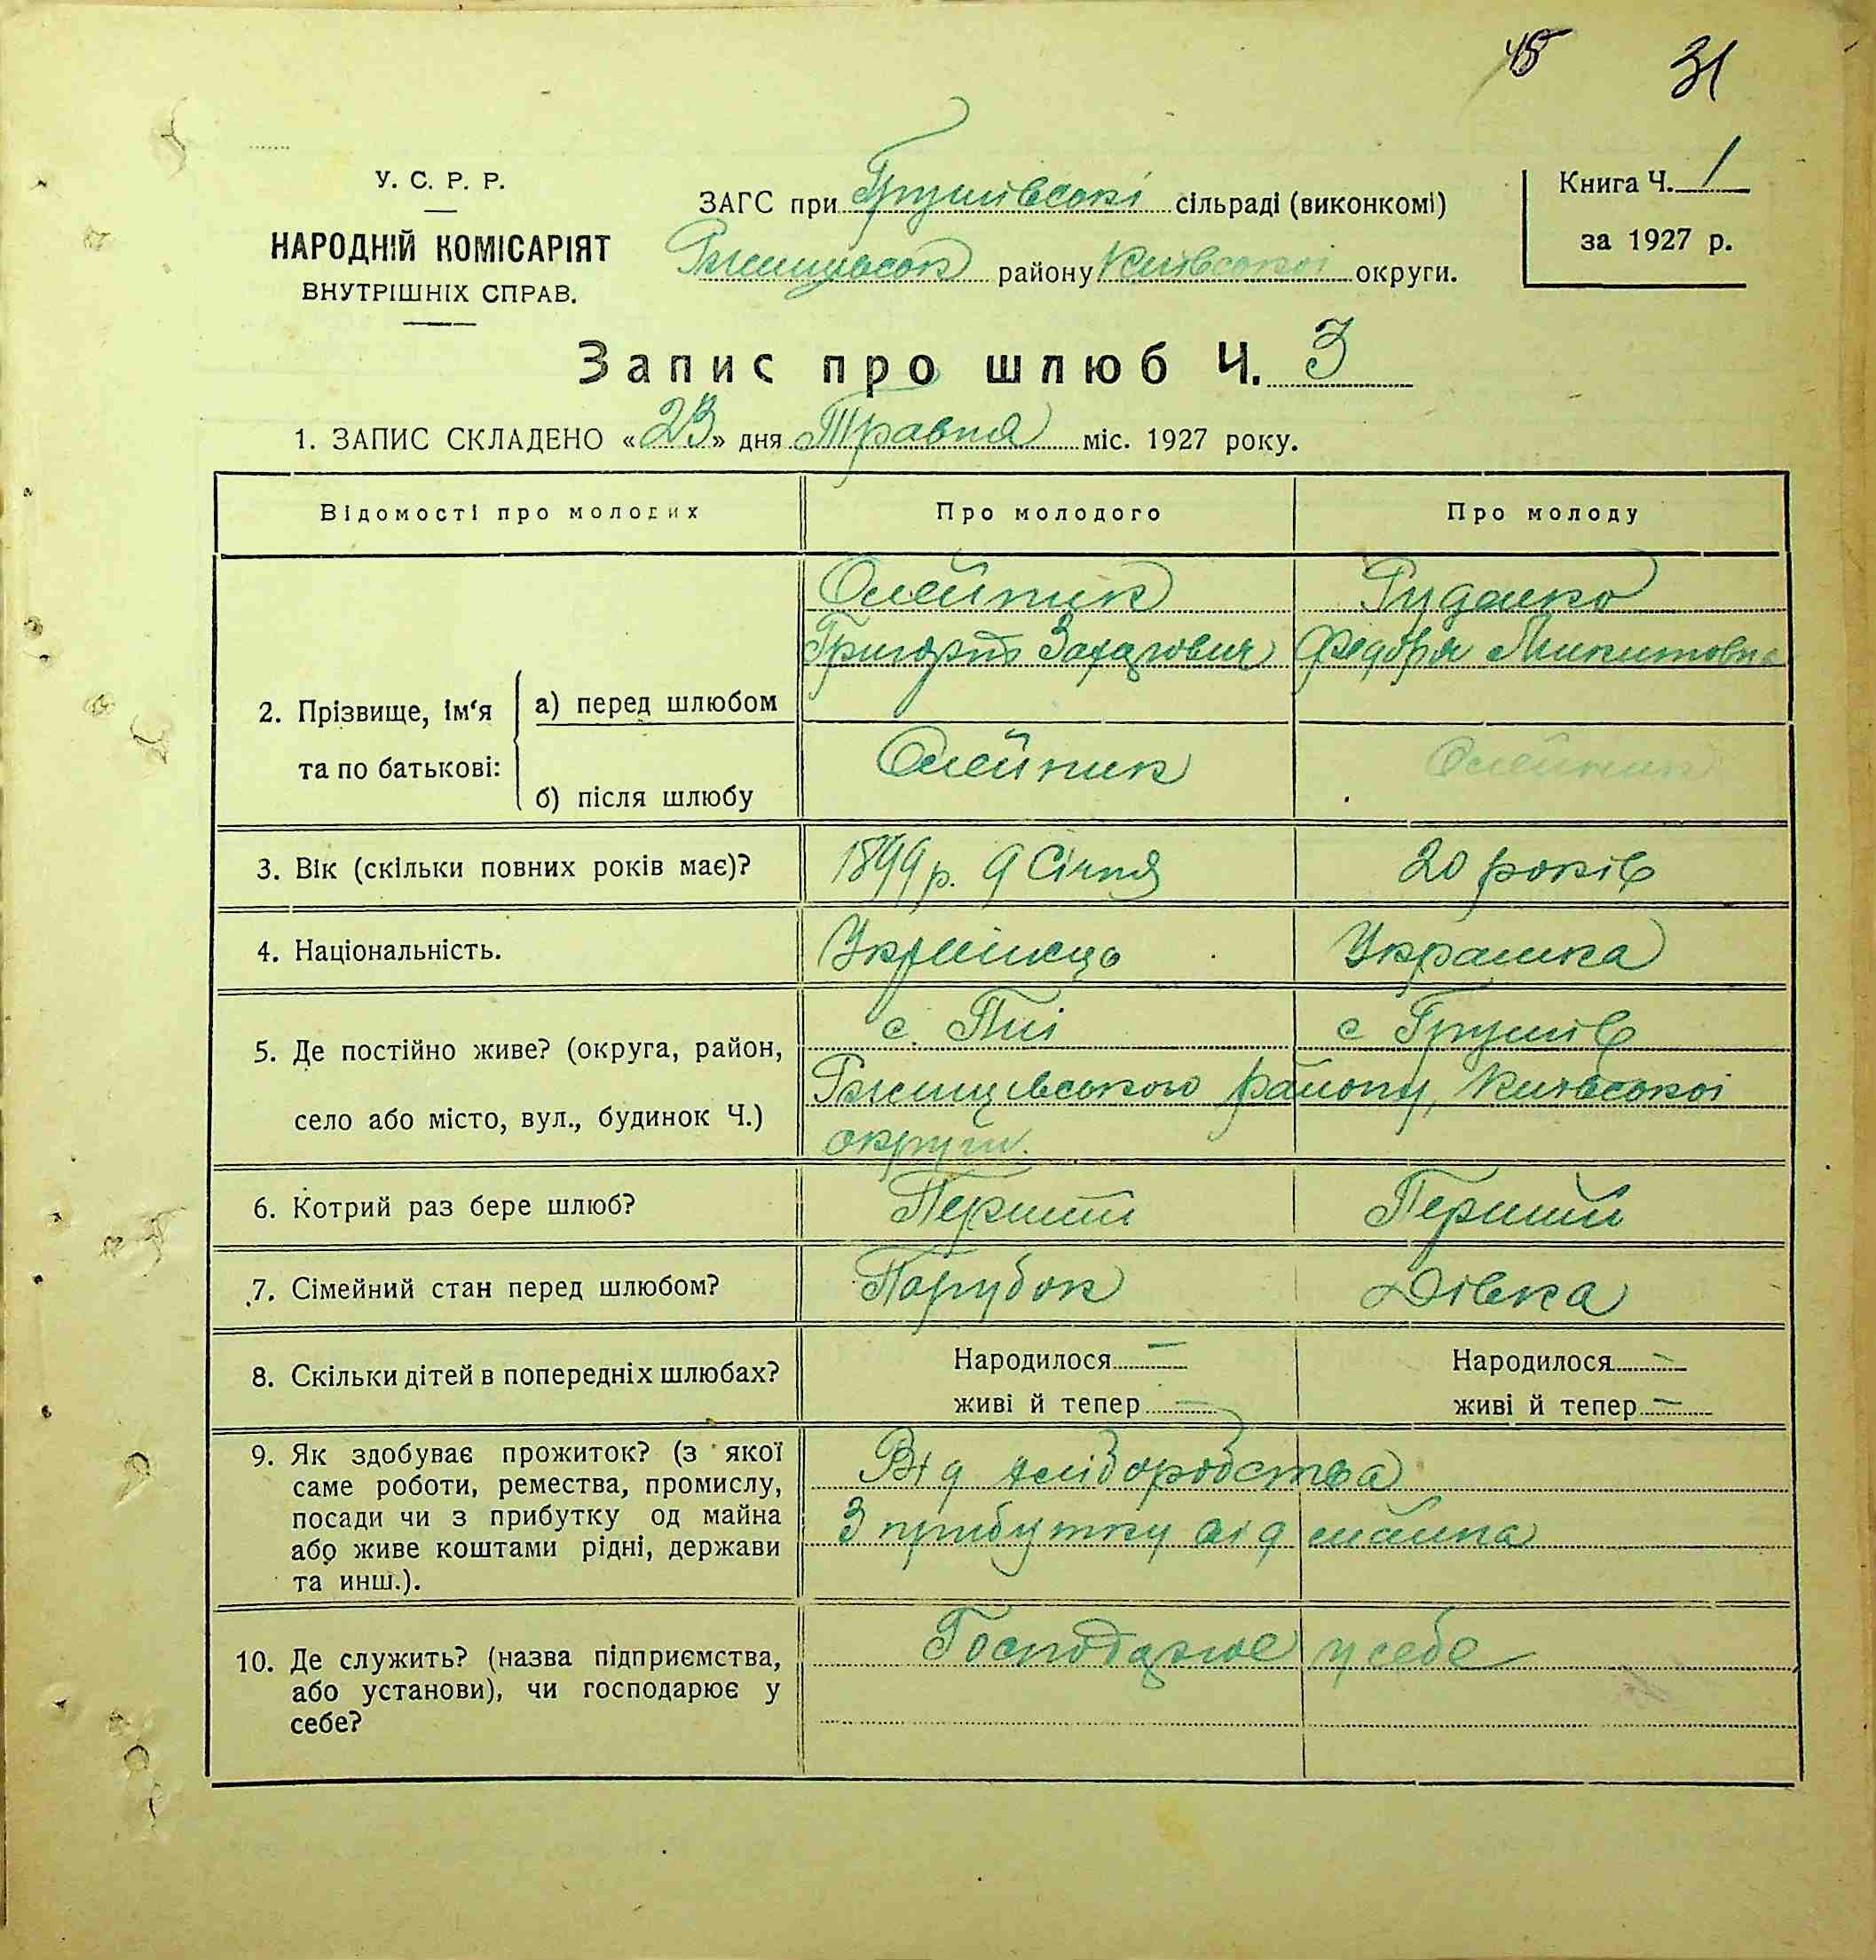 45 31
У. С. Р. Р.
НАРОДНІЙ КОМІСАРІЯТ
ВНУТРІШНІХ СПРАВ.
ЗАГС при Грушівські сільраді (виконкомі)
Ржищевськ району Київської округи.
Книга Ч. 1
за 1927 р.
Запис про шлюб Ч. 3
1. ЗАПИС СКЛАДЕНО «23» дня Травня міс. 1927 року.
Відомості про молодих
Про молодого
Про молоду
2. Прізвище, ім'я та по батькові:
а) перед шлюбом
Олейник
Григорій Захарович
Руденко
Федора Микитовна
б) після шлюбу
Олейник
Олейник
3. Вік (скільки повних років має)?
1899 р. 9 Січня
20 років
4. Національність.
Українець
Українка
5. Де постійно живе? (округа, район,
село або місто, вул., будинок Ч.)
с. Пії
с Грушів
Ржищевського району, Київської
округи.
6. Котрий раз бере шлюб?
Перший
Перший
7. Сімейний стан перед шлюбом?
Парубок
Дівка
8. Скільки дітей в попередніх шлюбах?
Народилося —
живі й тепер —
Народилося —
живі й тепер —
9. Як здобуває прожиток? (з якої
саме роботи, ремества, промислу,
посади чи з прибутку од майна
або живе коштами рідні, держави
та инш.).
Від хліборобства
З прибутку від майна
10. Де служить? (назва підприємства,
або установи), чи господарює у
себе?
Господарює у себе